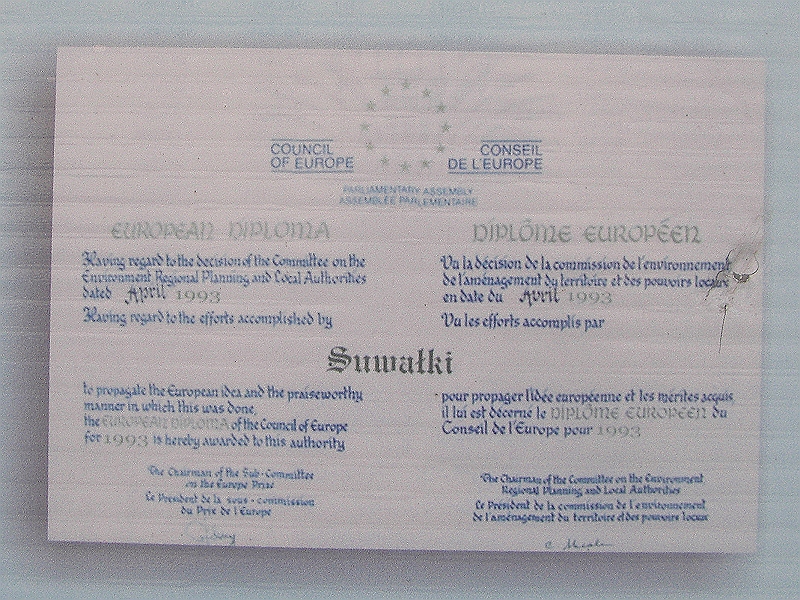 COUNCIL
OF EUROPE
CONSEIL
DE L'EUROPE
PARLIAMENTARY ASSEMBLY
ASSEMBLÉE PARLEMENTAIRE
EUROPEAN DIPLOMA
Having regard to the decision of the Committee on the
Environment Regional Planning and Local Authorities
dated April 1993
Having regard to the efforts accomplished by
DIPLÔME EUROPÉEN
Vu la décision de la commission de l'environnement
de l'aménagement du territoire et des pouvoirs locaux
en date du Avril 1993
Vu les efforts accomplis par
Suwałki
to propagate the European idea and the praiseworthy
manner in which this was done,
the EUROPEAN DIPLOMA of the Council of Europe
for 1993 is hereby awarded to this authority
pour propager l'idée européenne et les mérites acquis
il lui est décerné le DIPLÔME EUROPÉEN du
Conseil de l'Europe pour 1993
The Chairman of the Sub-Committee
on the Europe Prize
Le Président de la sous-commission
du Prix de l'Europe
The Chairman of the Committee on the Environment
Regional Planning and Local Authorities
Le Président de la commission de l'environnement
de l'aménagement du territoire et des pouvoirs locaux